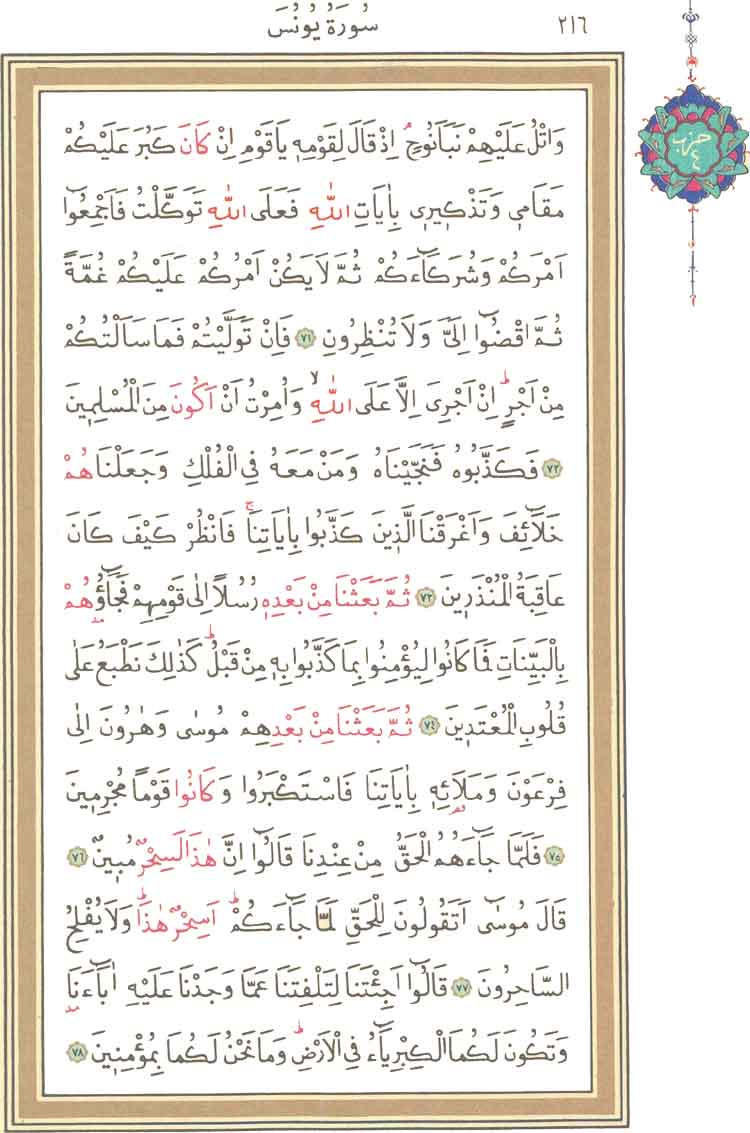 ٢١٦
سُورَةُ يُونُسَ
حزب
٤
وَاتْلُ عَلَيْهِمْ نَبَاَ نُوحٍۢ اِذْ قَالَ لِقَوْمِه۪ يَا قَوْمِ اِنْ كَانَ كَبُرَ عَلَيْكُمْ
مَقَام۪ي وَتَذْك۪ير۪ي بِاٰيَاتِ اللّٰهِ فَعَلَى اللّٰهِ تَوَكَّلْتُ فَاَجْمِعُٓوا
اَمْرَكُمْ وَشُرَكَٓاءَكُمْ ثُمَّ لَا يَكُنْ اَمْرُكُمْ عَلَيْكُمْ غُمَّةً
ثُمَّ اقْضُٓوا اِلَيَّ وَلَا تُنْظِرُونِ ﴿٧١﴾ فَاِنْ تَوَلَّيْتُمْ فَمَا سَاَلْتُكُمْ
مِنْ اَجْرٍۜ اِنْ اَجْرِيَ اِلَّا عَلَى اللّٰهِۙ وَاُمِرْتُ اَنْ اَكُونَ مِنَ الْمُسْلِم۪ينَ
﴿٧٢﴾ فَكَذَّبُوهُ فَنَجَّيْنَاهُ وَمَنْ مَعَهُ فِي الْفُلْكِ وَجَعَلْنَاهُمْ
خَلَٓائِفَ وَاَغْرَقْنَا الَّذ۪ينَ كَذَّبُوا بِاٰيَاتِنَاۚ فَانْظُرْ كَيْفَ كَانَ
عَاقِبَةُ الْمُنْذَر۪ينَ ﴿٧٣﴾ ثُمَّ بَعَثْنَا مِنْ بَعْدِه۪ رُسُلًا اِلٰى قَوْمِهِمْ فَجَٓاؤُ۫هُمْ
بِالْبَيِّنَاتِ فَمَا كَانُوا لِيُؤْمِنُوا بِمَا كَذَّبُوا بِه۪ مِنْ قَبْلُۜ كَذٰلِكَ نَطْبَعُ عَلٰى
قُلُوبِ الْمُعْتَد۪ينَ ﴿٧٤﴾ ثُمَّ بَعَثْنَا مِنْ بَعْدِهِمْ مُوسٰى وَهٰرُونَ اِلٰى
فِرْعَوْنَ وَمَلَا۬ئِه۪ بِاٰيَاتِنَا فَاسْتَكْبَرُوا وَكَانُوا قَوْمًا مُجْرِم۪ينَ
﴿٧٥﴾ فَلَمَّا جَٓاءَهُمُ الْحَقُّ مِنْ عِنْدِنَا قَالُٓوا اِنَّ هٰذَا لَسِحْرٌ مُب۪ينٌ ﴿٧٦﴾
قَالَ مُوسٰٓى اَتَقُولُونَ لِلْحَقِّ لَمَّا جَٓاءَكُمْۜ اَسِحْرٌ هٰذَاۜ وَلَا يُفْلِحُ
السَّاحِرُونَ ﴿٧٧﴾ قَالُٓوا اَجِئْتَنَا لِتَلْفِتَنَا عَمَّا وَجَدْنَا عَلَيْهِ اٰبَٓاءَنَا
وَتَكُونَ لَكُمَا الْكِبْرِيَٓاءُ فِي الْاَرْضِۜ وَمَا نَحْنُ لَكُمَا بِمُؤْمِن۪ينَ ﴿٧٨﴾